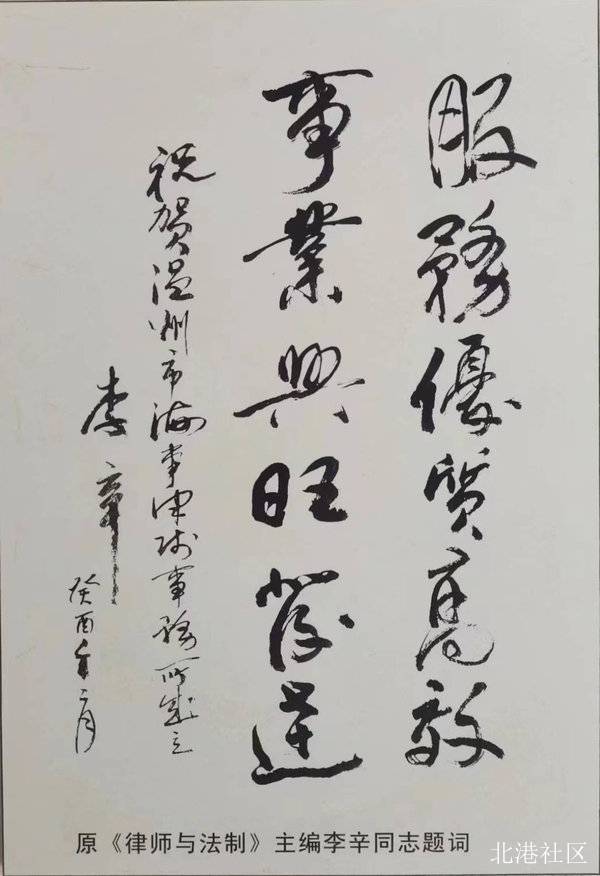 服務優質高效
事業興旺發達
祝贺温州市海事律师事务所成立
李辛
癸酉年二月
原《律师与法制》主编李辛同志题词
北港社区